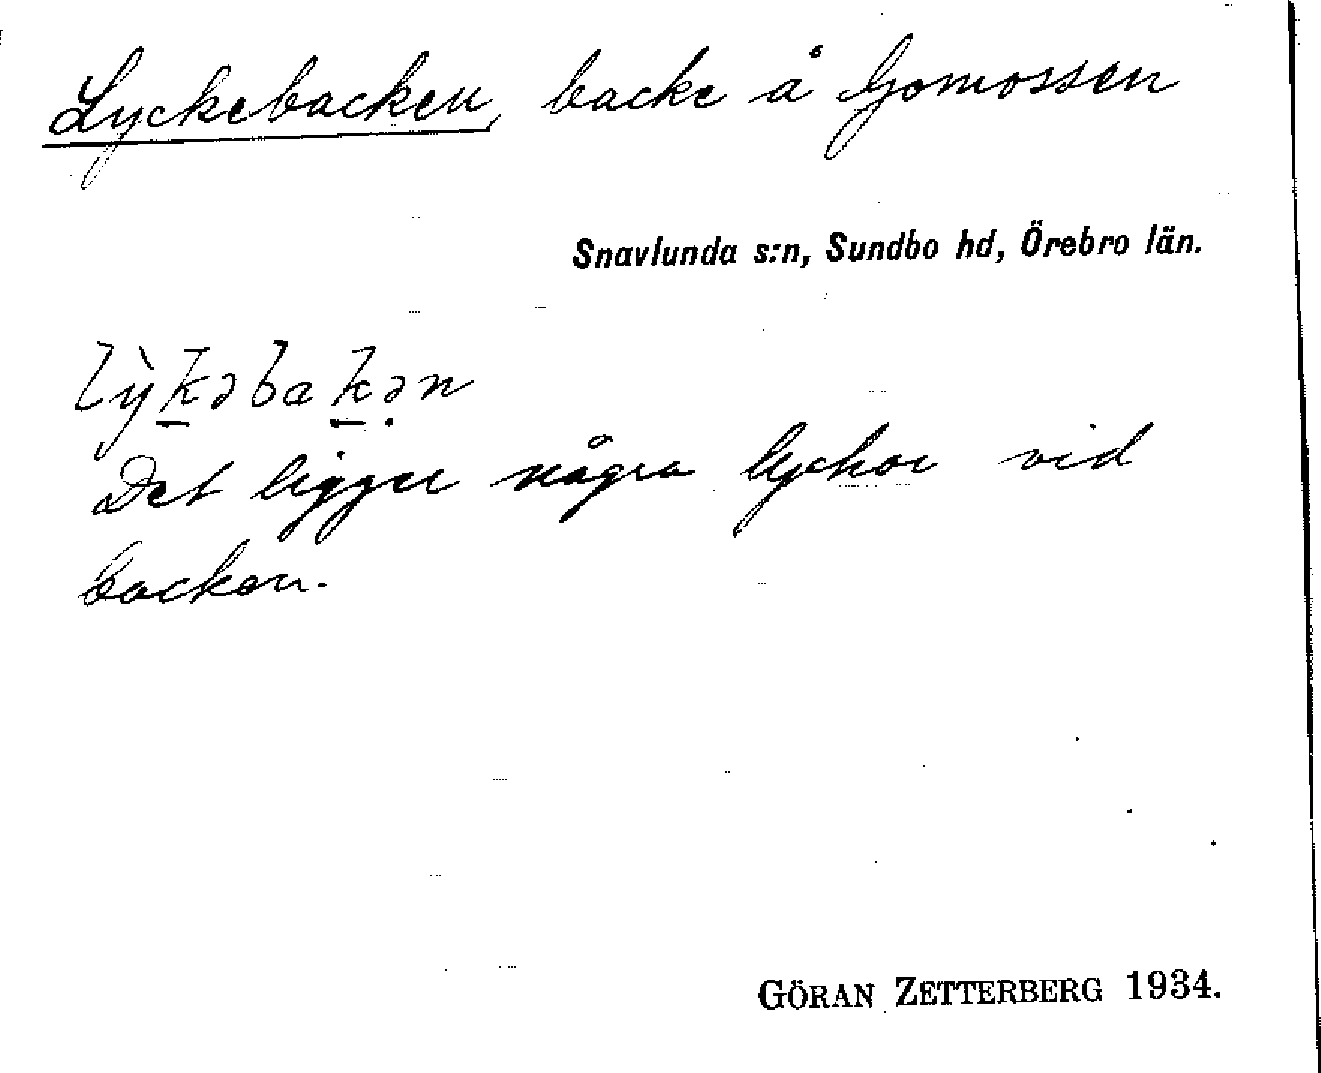 Lyckebacken, backe å Gomossen
Snavlunda s:n, Sundbo hd, Örebro län.
lỳk̲əbak̲ə̣n
Det ligger några lyckor vid
backen.
GÖRAN ZETTERBERG 1934.